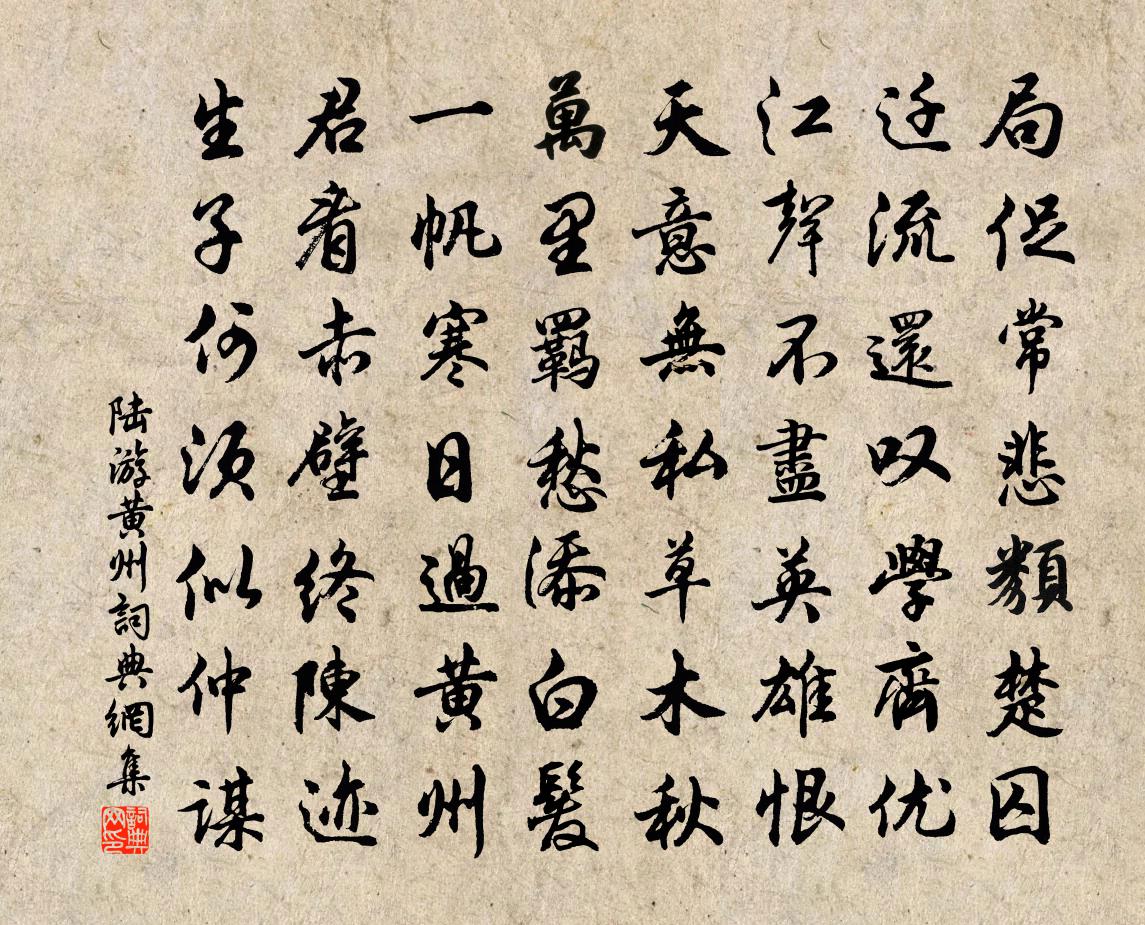 局促常悲類楚囚
迁流還叹學齊优
江聲不盡英雄恨
天意無私草木秋
萬里羈愁添白髮
一帆寒日過黄州
君看赤壁終陳迹
生子何須似仲謀
陆游黄州詞典網集
詞典网印